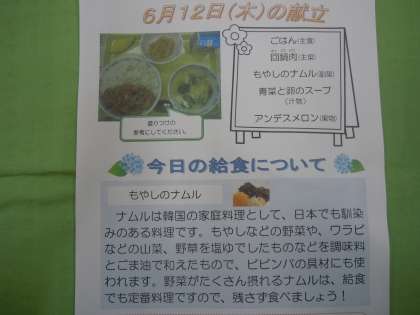 6月12日(木)の献立
ごはん(主食)
回鍋肉(主菜)
もやしのナムル(副菜)
青菜と卵のスープ
(汁物)
アンデスメロン(果物)
盛りつけの
参考にしてください。
今日の給食について
もやしのナムル
ナムルは韓国の家庭料理として、日本でも馴染
みのある料理です。もやしなどの野菜や、ワラビ
などの山菜、野草を塩ゆでしたものなどを調味料
とごま油で和えたもので、ビビンバの具材にも使
われます。野菜がたくさん摂れるナムルは、給食
でも定番料理ですので、残さず食べましょう!